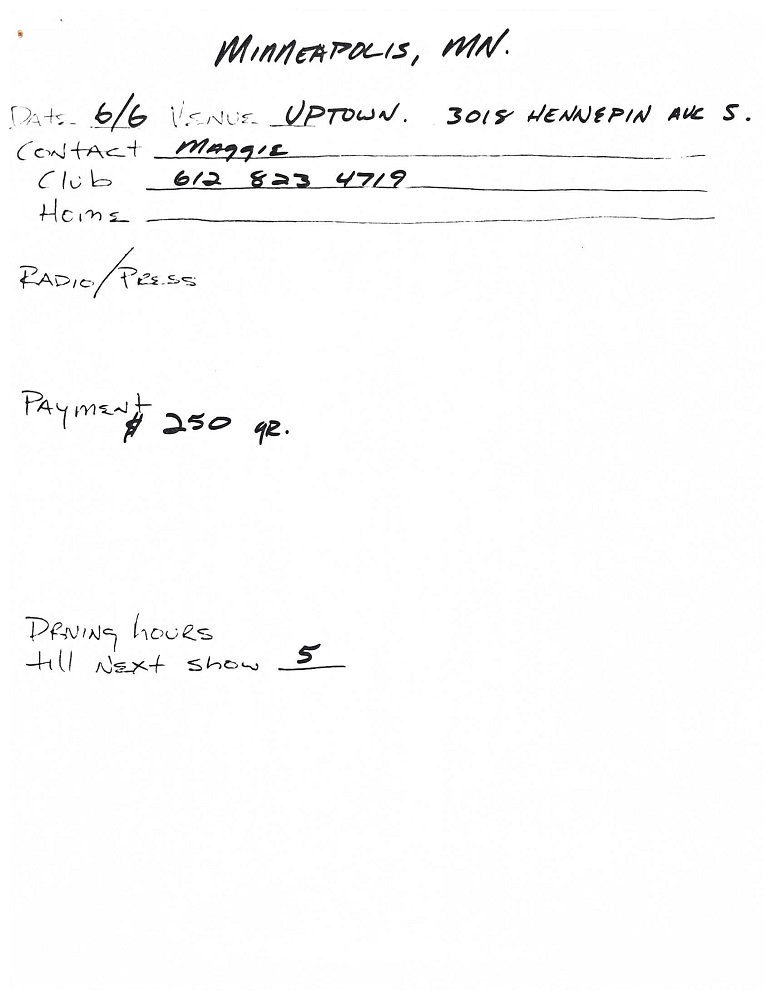 MINNEAPOLIS, MN.
DATE 6/6 VENUE UPTOWN. 3018 HENNEPIN AVE S.
CONTACT Maggie
Club 612 823 4719
Home
RADIO/PRESS
PAYMENT
$ 250 gr.
DRIVING hours
till NEXT show 5